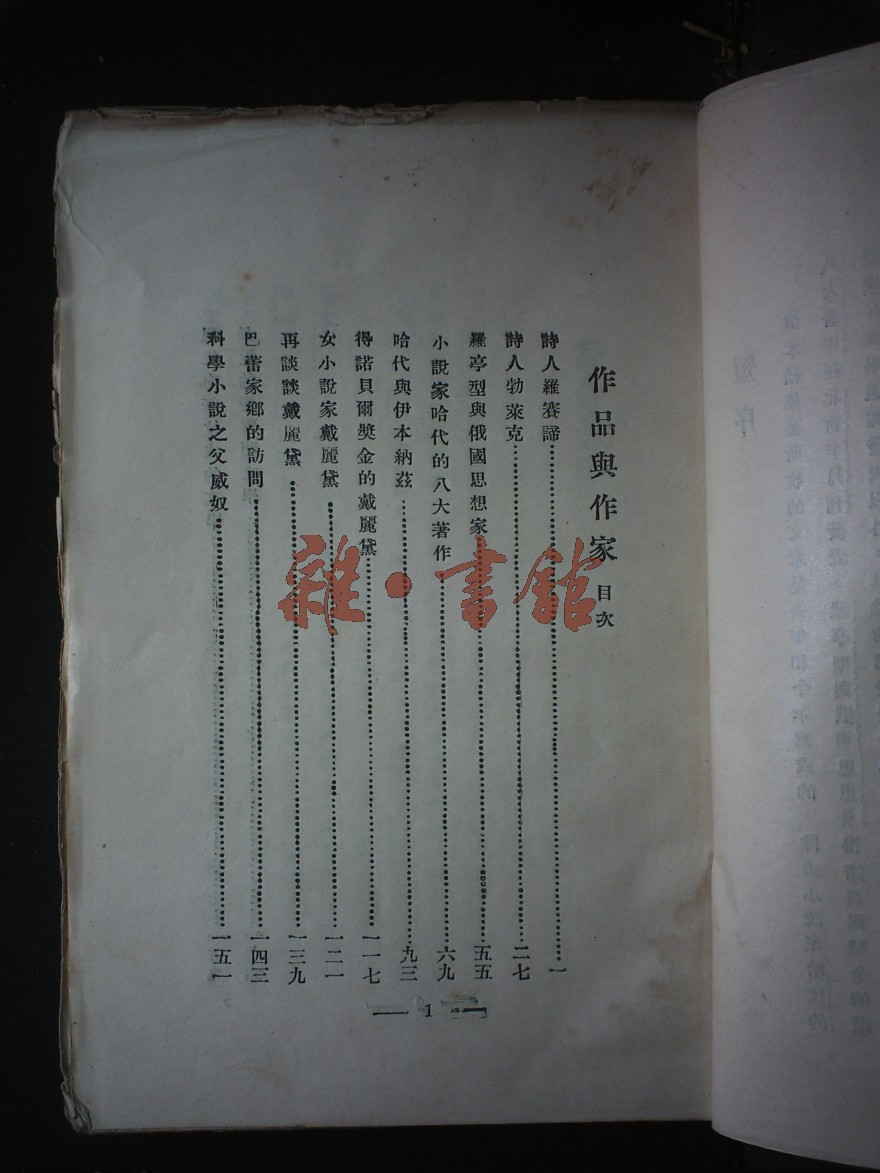 作品與作家 目次
詩人羅賽諦⋯⋯一
詩人勃萊克⋯⋯二七
羅亭型與俄國思想家⋯⋯五五
小說家哈代的八大著作⋯⋯六九
哈代與伊本納茲⋯⋯九三
得諾貝爾獎金的戴麗黛⋯⋯一一七
女小說家戴麗黛⋯⋯一二一
再談談戴麗黛⋯⋯一三九
巴蕾家鄉的訪問⋯⋯一四三
科學小說之父威奴⋯⋯一五一
— 1 —
雜·書館